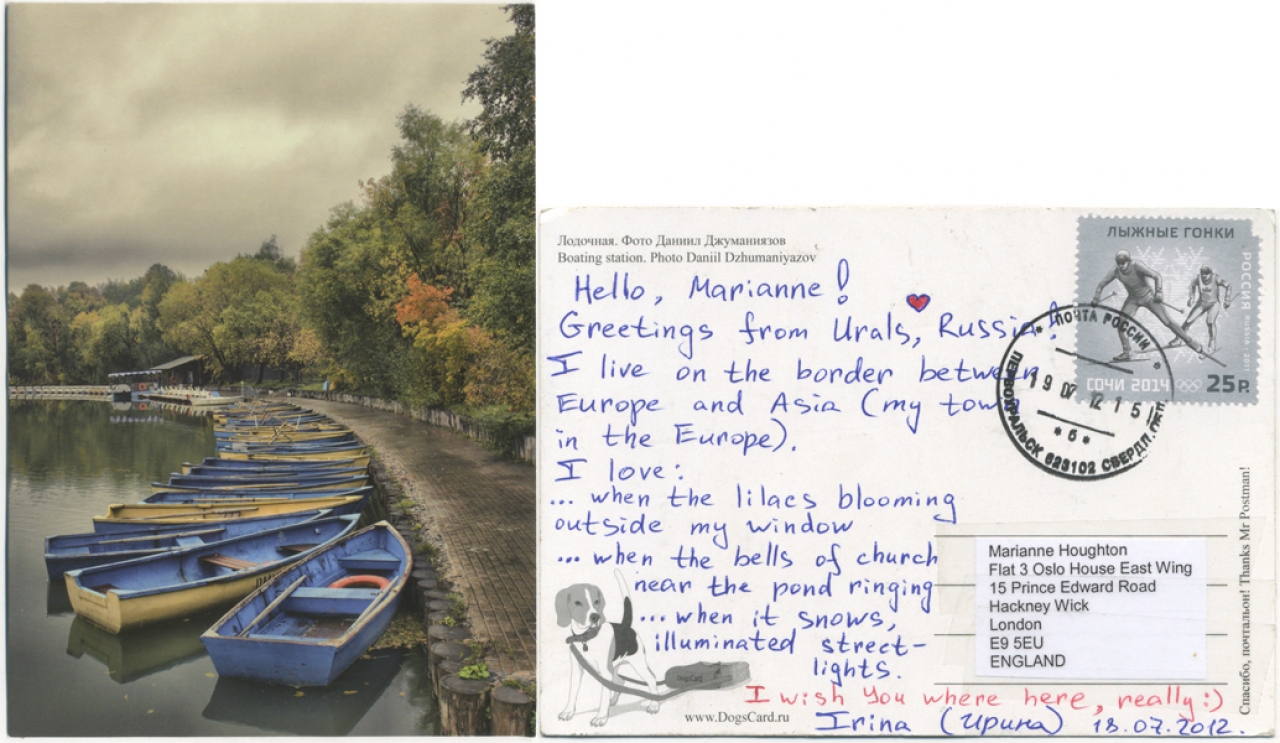 Лодочная. Фото Даниил Джуманиязов
Boating station. Photo Daniil Dzhumaniyazov
Hello, Marianne!
Greetings from Urals, Russia!
I live on the border between
Europe and Asia (my town
in the Europe).
I love:
... when the lilacs blooming
outside my window
... when the bells of church
near the pond ringing
... when it snows,
illuminated street-
lights.
I wish You where here, really :)
Irina (Ирина) 18.07.2012.
www.DogsCard.ru
DogsCard
ЛЫЖНЫЕ ГОНКИ
РОССИЯ RUSSIA 2011
СОЧИ 2014
25 Р.
ПОЧТА РОССИИ
19 07 12 15
* б *
ПЕРВОУРАЛЬСК 623102 СВЕРДЛ.
Marianne Houghton
Flat 3 Oslo House East Wing
15 Prince Edward Road
Hackney Wick
London
E9 5EU
ENGLAND
Спасибо, почтальон! Thanks Mr Postman!